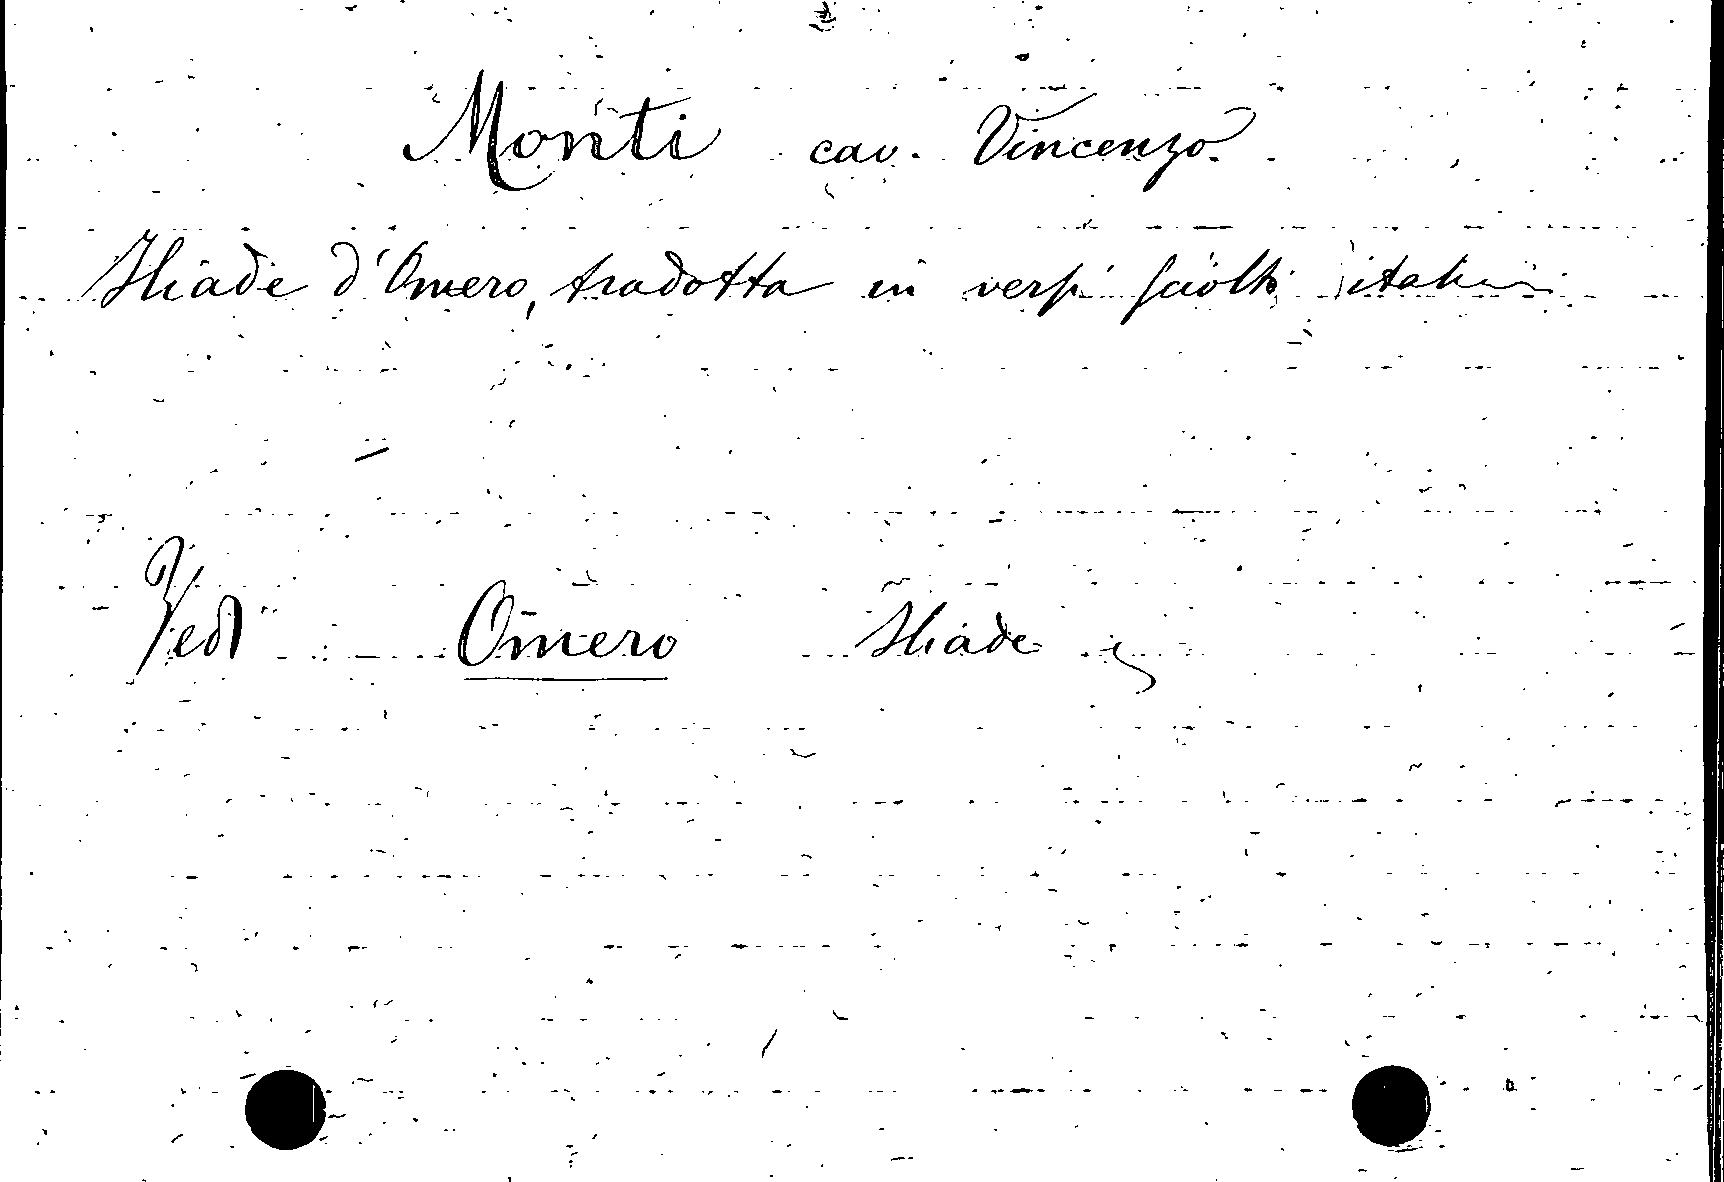 Monti cav. Vincenzo.
Iliade d'Omero, tradotta in versi sciolti italiani
Vedi Omero Iliade